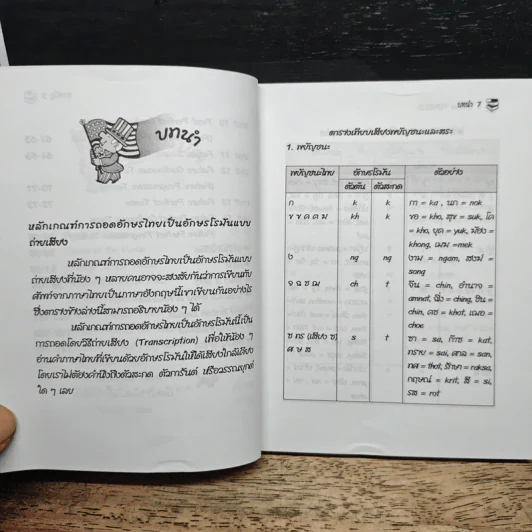 บทนำ
หลักเกณฑ์การถอดอักษรไทยเป็นอักษรโรมันแบบ
ถ่ายเสียง
หลักเกณฑ์การถอดอักษรไทยเป็นอักษรโรมันแบบ
ถ่ายเสียงที่น้อง ๆ หลายคนอาจจะสงสัยกันว่าการเขียนทับ
ศัพท์จากภาษาไทยเป็นภาษาอังกฤษนี้เขาเขียนกันอย่างไร
ซึ่งตารางข้างล่างนี้สามารถอธิบายน้อง ๆ ได้
หลักเกณฑ์การถอดอักษรไทยเป็นอักษรโรมันนี้เป็น
การถอดโดยวิธีถ่ายเสียง (Transcription) เพื่อให้น้อง ๆ
อ่านคำภาษาไทยที่เขียนด้วยอักษรโรมันให้ได้เสียงใกล้เคียง
โดยเราไม่ต้องคำนึงถึงตัวสะกด ตัวการันต์ หรือวรรณยุกต์
ใด ๆ เลย
บทนำ 7
ตารางเทียบเสียงพยัญชนะและสระ
1. พยัญชนะ
พยัญชนะไทย อักษรโรมัน ตัวอย่าง
ตัวต้น ตัวสะกด
ก k k กา = ka , นก = nok
ข ฃ ค ฅ ฆ kh k ขอ = kho, สุข = suk, โค
= kho, ยุค = yuk, ฆ้อง =
khong, เมฆ = mek
ง ng ng งาม = ngam, สงฆ์ =
song
จ ฉ ช ฌ ch t จีน = chin, อำนาจ =
amnat, ฉิ่ง = ching, ชิน =
chin, คช = khot, เฌอ =
choe
ซ ทร (เสียง ซ) s t ซา = sa, ก๊าซ = kat,
ศ ษ ส ทราย = sai, ศาล = san,
ทศ = thot, รักษา = raksa,
กฤษณ์ = krit, สี = si,
รส = rot